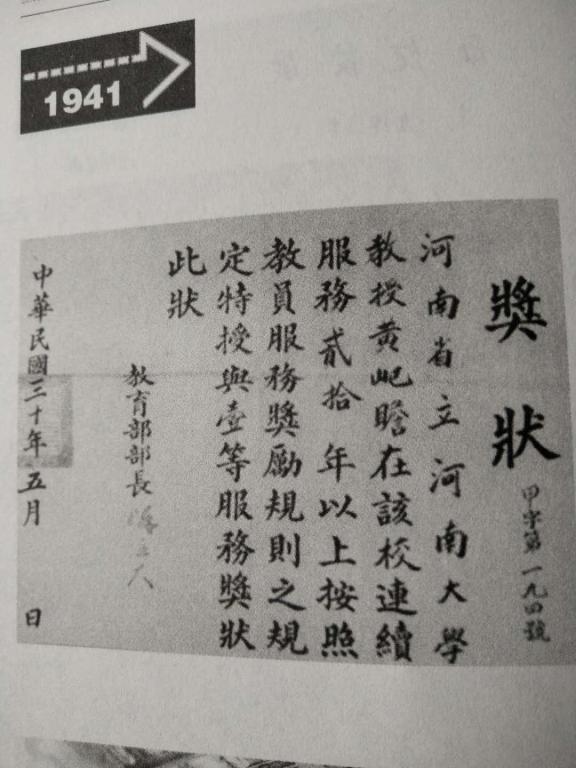 1941
獎狀
甲字第一九四號
河南省立河南大學
教授黃屺瞻在該校連續
服務貳拾年以上按照
教員服務獎勵規則之規
定特授與壹等服務獎狀
此狀
教育部部長陳立夫
中華民國三十年五月 日